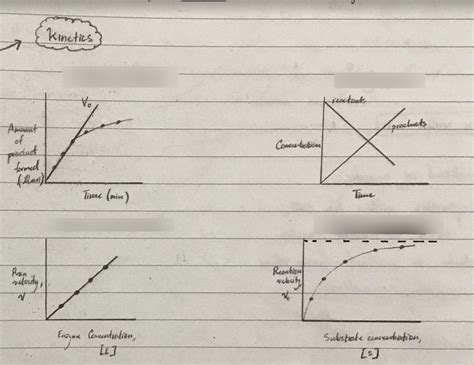 Kinetics
V₀
Amount
of
product
formed
Time (min)
reactants
products
Concentration
Time
Rxn
velocity,
v
Enzyme Concentration,
[E]
Reaction
velocity,
V₀
Substrate concentration,
[S]